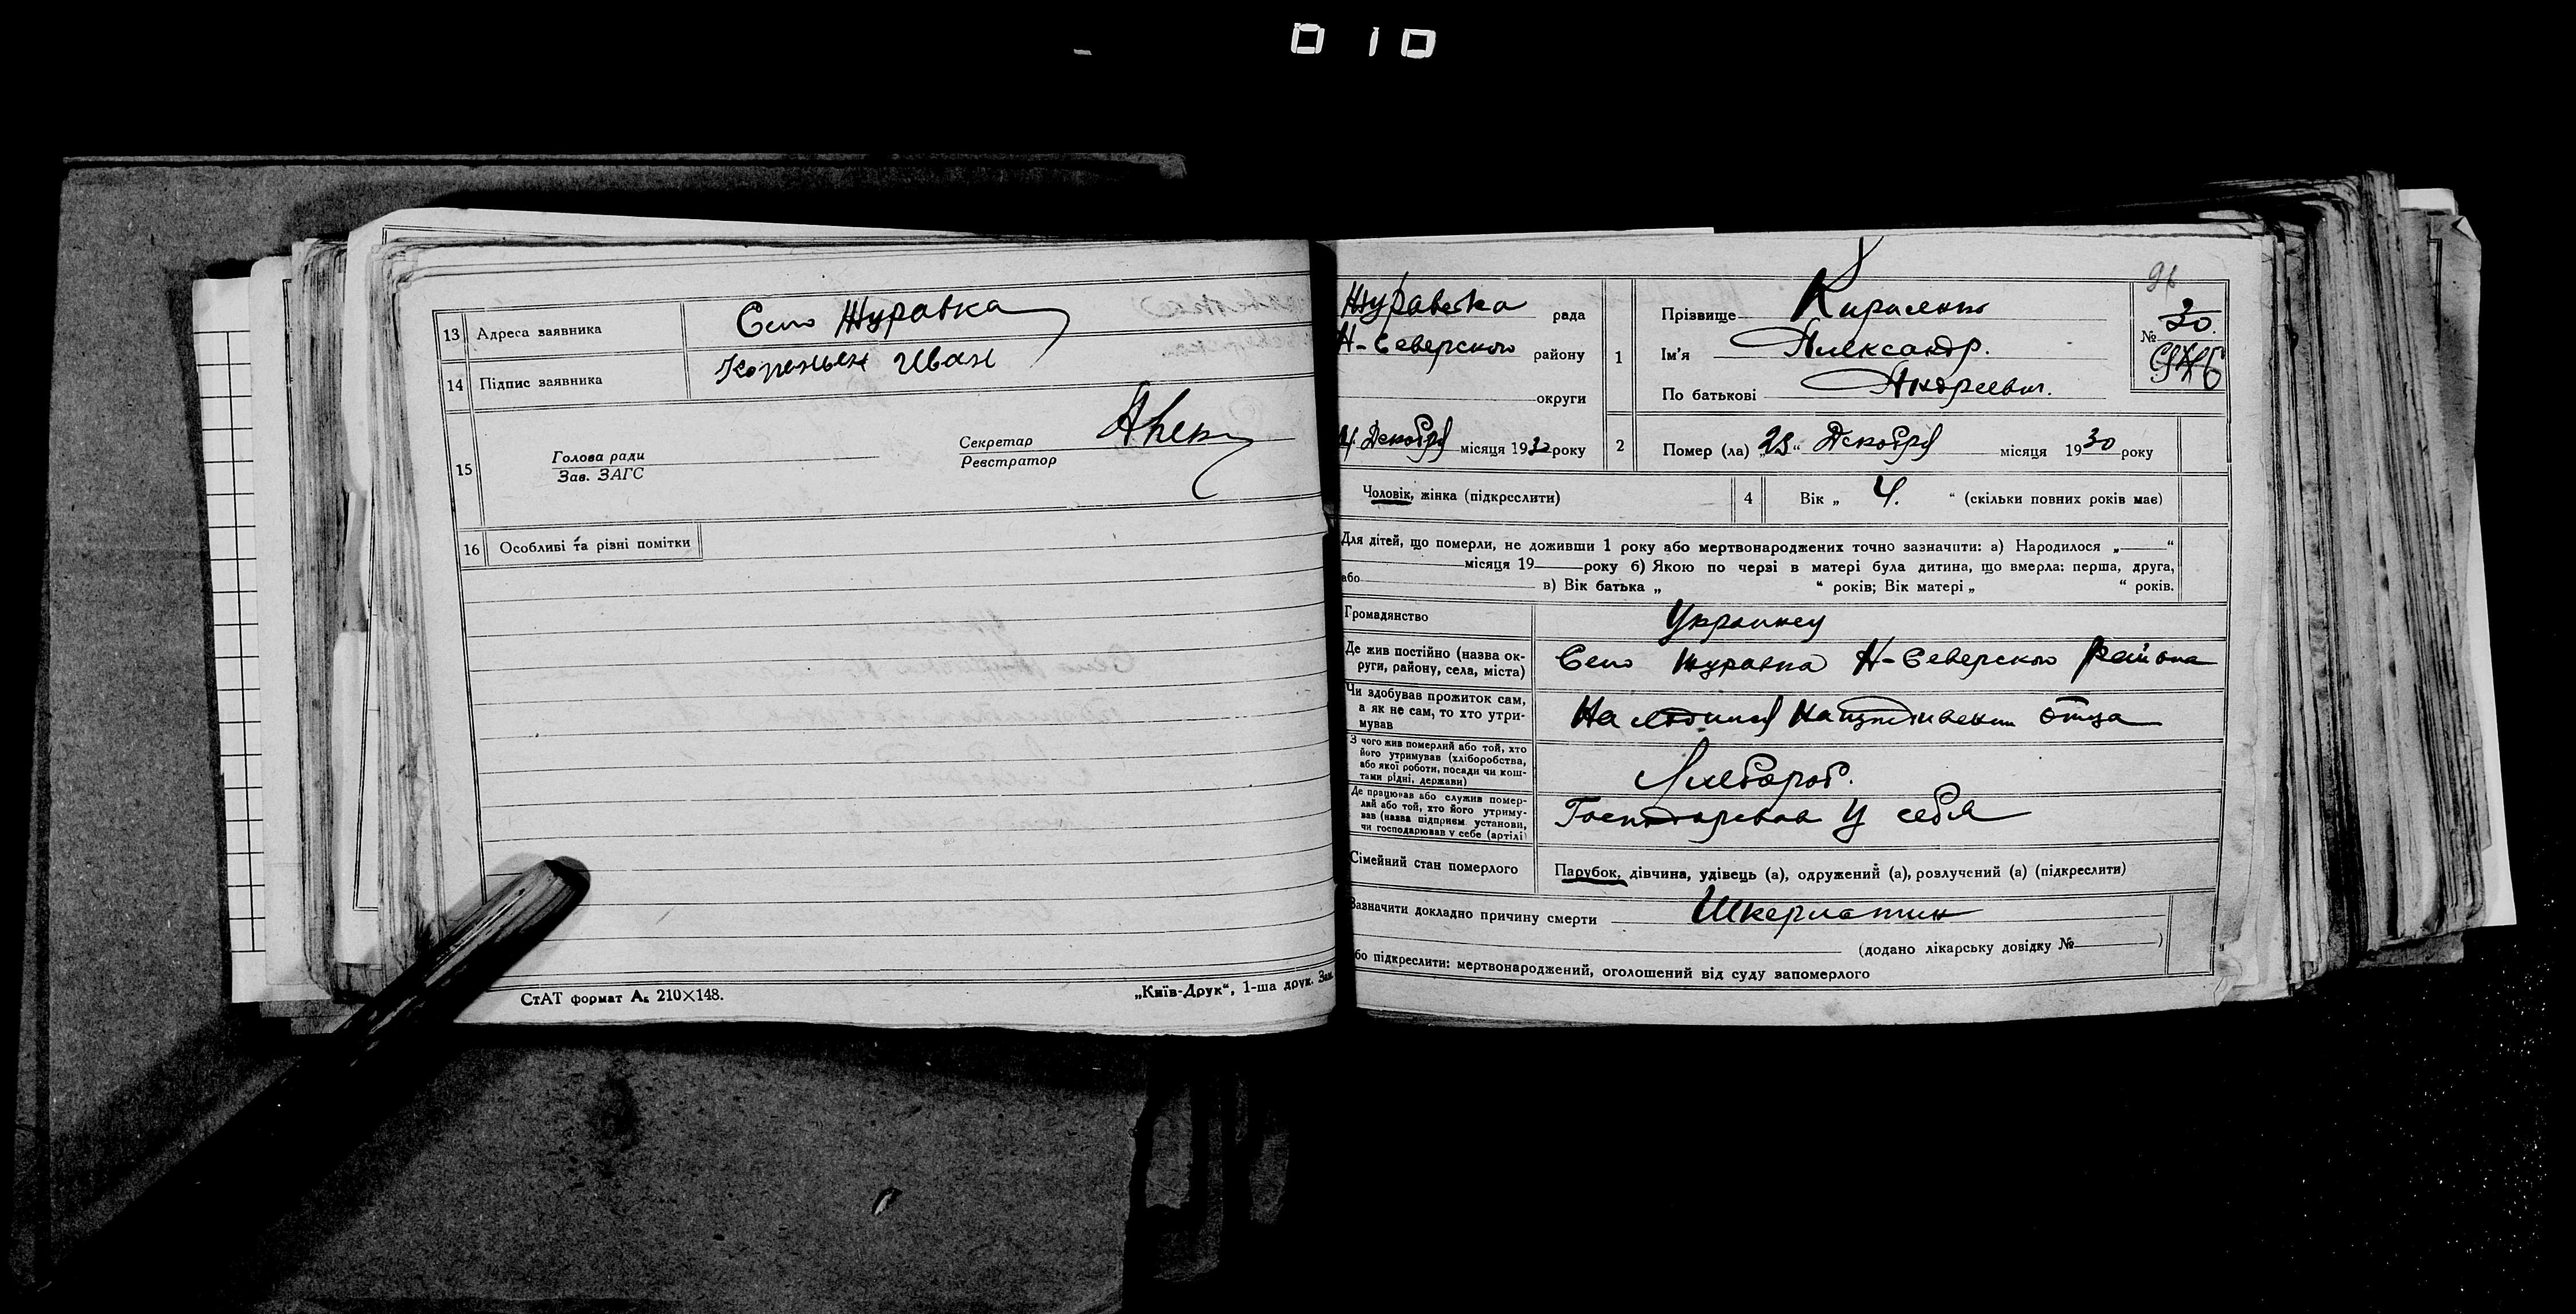 010
13 Адреса заявника Село Журавка
14 Підпис заявника Иван
15 Голова ради
Зав. ЗАГС
Секретар
Реєстратор
16 Особливі та різні помітки
СтАТ формат А₅ 210×148.
„Київ-Друк“, 1-ша друк. Зам.
96
Журавська рада
Н-Северского району
округи
Декабря місяця 1930 року
1 Прізвище
Ім'я Александр.
По батькові Андреевич.
№ 30.
2 Помер (ла) „ “ Декабря місяця 1930 року
Чоловік, жінка (підкреслити)
4 Вік „ 4. “ (скільки повних років має)
Для дітей, що померли, не доживши 1 року або мертвонароджених точно зазначити: а) Народилося „ “
місяця 19 року б) Якою по черзі в матері була дитина, що вмерла: перша, друга,
або в) Вік батька „ “ років; Вік матері „ “ років.
Громадянство Украинец
Де жив постійно (назва ок-
руги, району, села, міста)
Село Журавка Н-Северского района
Чи здобував прожиток сам,
а як не сам, то хто утри-
мував
На отца
З чого жив померлий або той, хто
його утримував (хліборобства,
або якої роботи, посади чи кош-
тами рідні, держави)
Хлебороб.
Де працював або служив помер-
лий або той, хто його утриму-
вав (назва підприєм. установи,
чи господарював у себе (артілі)
Господаревав у себя
Сімейний стан померлого
Парубок, дівчина, удівець (а), одружений (а), розлучений (а) (підкреслити)
Зазначити докладно причину смерти Шкерлатин
(додано лікарську довідку № )
бо підкреслити: мертвонароджений, оголошений від суду запомерлого